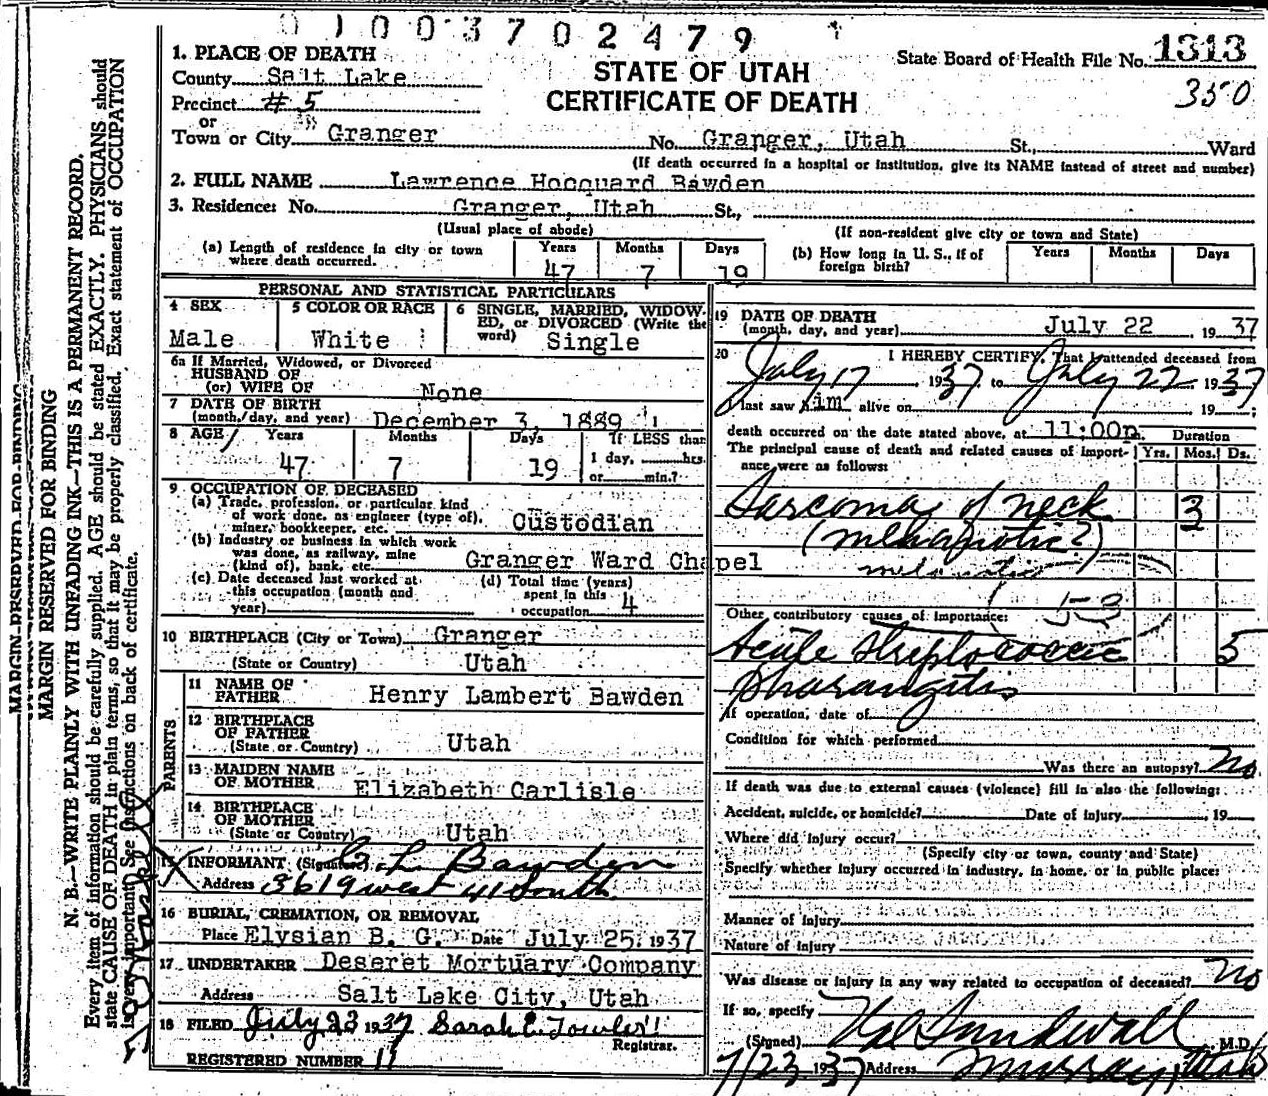 0 1 0 0 3 7 0 2 4 7 9
State Board of Health File No. 1313
350
STATE OF UTAH
CERTIFICATE OF DEATH
1. PLACE OF DEATH
County Salt Lake
Precinct #5
or
Town or City Granger No. Granger, Utah St., Ward
(If death occurred in a hospital or institution, give its NAME instead of street and number)
2. FULL NAME Lawrence Hocquard Bawden
3. Residence: No. Granger, Utah St.,
(Usual place of abode) (If non-resident give city or town and State)
(a) Length of residence in city or town where death occurred. Years 47 Months 7 Days 19
(b) How long in U. S., if of foreign birth? Years Months Days
PERSONAL AND STATISTICAL PARTICULARS
4 SEX Male
5 COLOR OR RACE White
6 SINGLE, MARRIED, WIDOWED, or DIVORCED (Write the word) Single
6a If Married, Widowed, or Divorced
HUSBAND OF
(or) WIFE OF None
7 DATE OF BIRTH
(month, day, and year) December 3, 1889
8 AGE Years 47 Months 7 Days 19 If LESS than 1 day, hrs. or min.?
9 OCCUPATION OF DECEASED
(a) Trade, profession, or particular kind of work done, as engineer (type of), miner, bookkeeper, etc. Custodian
(b) Industry or business in which work was done, as railway, mine (kind of), bank, etc. Granger Ward Chapel
(c) Date deceased last worked at this occupation (month and year)
(d) Total time (years) spent in this occupation 4
10 BIRTHPLACE (City or Town) Granger
(State or Country) Utah
PARENTS
11 NAME OF FATHER Henry Lambert Bawden
12 BIRTHPLACE OF FATHER
(State or Country) Utah
13 MAIDEN NAME OF MOTHER Elizabeth Carlisle
14 BIRTHPLACE OF MOTHER
(State or Country) Utah
15 INFORMANT (Signature) L. Bawden
Address 3619 west 41 South
16 BURIAL, CREMATION, OR REMOVAL
Place Elysian B. G. Date July 25, 1937
17 UNDERTAKER Deseret Mortuary Company
Address Salt Lake City, Utah
18 FILED July 23 1937 Sarah E. Towler
Registrar.
REGISTERED NUMBER 11
19 DATE OF DEATH
(month, day, and year) July 22, 1937
20 I HEREBY CERTIFY, That I attended deceased from
July 17, 1937 to July 22, 1937
I last saw him alive on 19 ;
death occurred on the date stated above, at 11:00p.
The principal cause of death and related causes of importance were as follows:
Duration Yrs. Mos. Ds.
Sarcoma of neck 3
Other contributory causes of importance: 53
Acute Streptococcic 5
pharangitis
If operation, date of
Condition for which performed
Was there an autopsy? No
If death was due to external causes (violence) fill in also the following:
Accident, suicide, or homicide? Date of Injury , 19
Where did injury occur?
(Specify city or town, county and State)
Specify whether injury occurred in industry, in home, or in public place:
Manner of Injury
Nature of Injury
Was disease or injury in any way related to occupation of deceased? No
If so, specify
(Signed) Sundwall, M.D.
7/23 1937 Address Murray, Utah
MARGIN RESERVED FOR BINDING
MARGIN RESERVED FOR BINDING
N. B.—WRITE PLAINLY WITH UNFADING INK—THIS IS A PERMANENT RECORD.
Every item of information should be carefully supplied. AGE should be stated EXACTLY. PHYSICIANS should
state CAUSE OF DEATH in plain terms, so that it may be properly classified. Exact statement of OCCUPATION
is very important. See instructions on back of certificate.